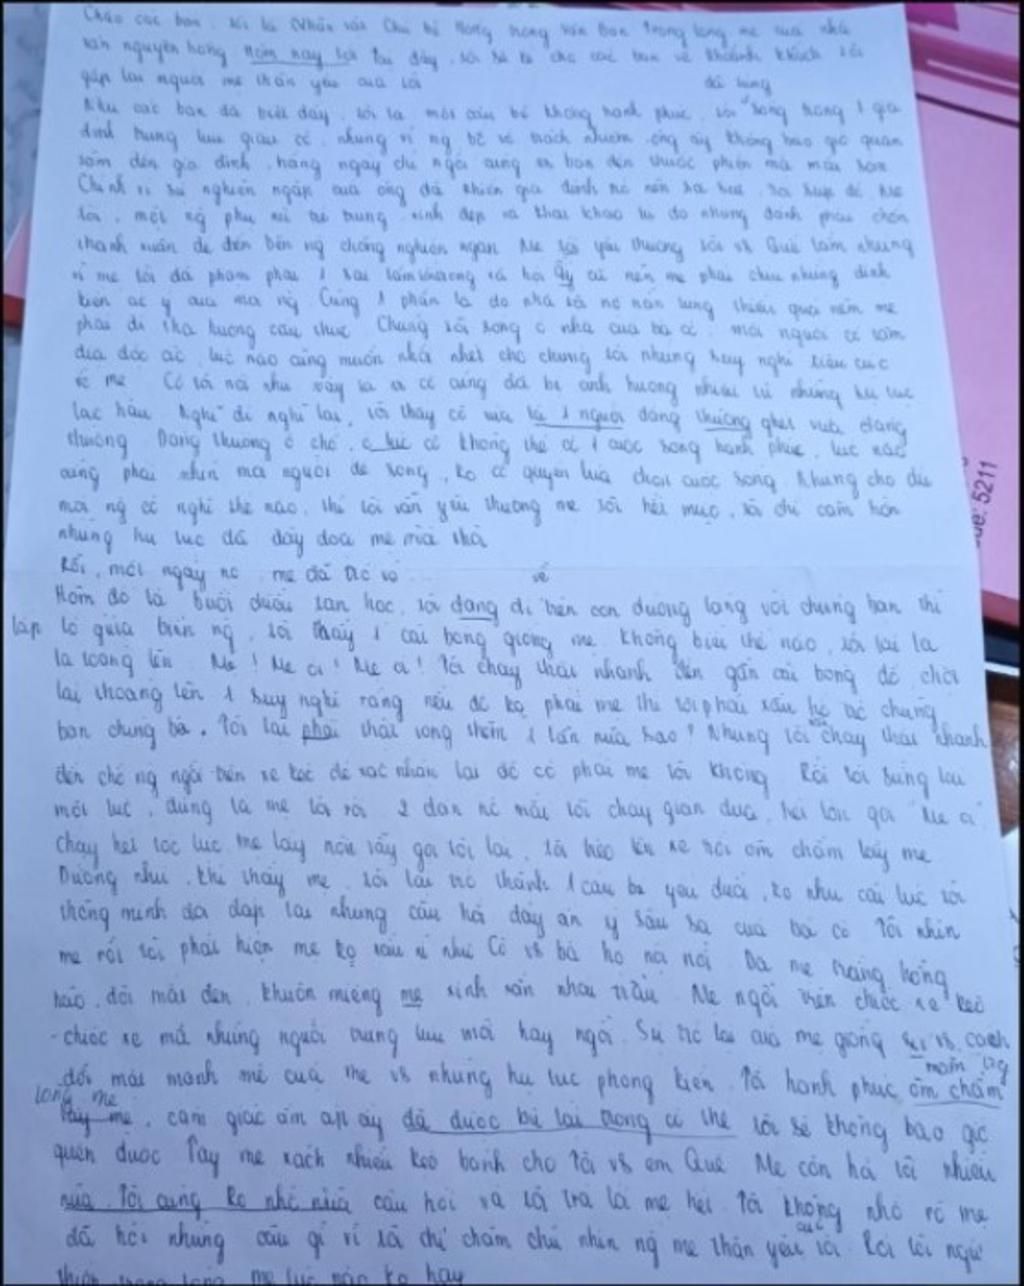 Chào các bạn, tôi là nhân vật Chú bé Hồng trong văn bản Trong lòng mẹ của nhà
văn nguyên hồng hôm nay tôi tại đây, tôi sẽ kể cho các bạn về khoảnh khắc tôi
gặp lại người mẹ thân yêu của tôi
đã từng
Như các bạn đã biết đấy, tôi là một cậu bé không hạnh phúc, tôi sống trong 1 gia
đình trung lưu giàu có, nhưng vì ng bố vô trách nhiệm, ông ấy không bao giờ quan
tâm đến gia đình, hàng ngày chỉ ngồi cùng bàn đèn thuốc phiện mà mãi
Chính vì sự nghiện ngập của ông đã khiến gia đình trở nên sa sút, Mẹ
tôi, một ng phụ nữ trẻ trung, xinh đẹp và khao khát tự do nhưng đành phải chôn
thanh xuân để đến bên ng chồng nghiện ngập Mẹ tôi yêu thương tôi vs Quế lắm nhưng
vì mẹ tôi đã phạm phải 1 sai lầm xã hội ấy nên mẹ phải chịu những định
kiến ác ý của mọi ng. Cũng 1 phần là do nhà tôi nợ nần túng thiếu quá nên mẹ
phải đi tha hương cầu thực Chúng tôi sống ở nhà của bà cô, một người có tâm
địa độc ác, lúc nào cũng muốn nhồi nhét cho chúng tôi những suy nghĩ tiêu cực
về mẹ Cô tôi nói như vậy là vì cô cũng đã bị ảnh hưởng nhiều từ những hủ tục
lạc hậu Nghĩ đi nghĩ lại, tôi thấy cô vừa là 1 người đáng thường ghét vừa đáng
thương Đáng thương ở chỗ, cô không thể có 1 cuộc sống hạnh phúc, lúc nào
cũng phải nhìn mọi người để sống, ko có quyền lựa chọn cuộc sống Nhưng cho dù
mọi ng có nghĩ thế nào, thì tôi vẫn yêu thương mẹ tôi hết mực, tôi chỉ căm hờn
những hủ tục đã đày đoạ mẹ mà thôi
Rồi, một ngày nọ mẹ đã trở về
về
Hôm đó là buổi chiều tan học, tôi đang đi trên con đường làng với chúng bạn thì
lập ló giữa biển ng, tôi thấy 1 cái bóng giống mẹ không biết thế nào, tôi lại la
la toáng lên Mẹ! Mẹ ơi! Mẹ ơi! Tôi chạy thật nhanh đến gần cái bóng đó chợt
lại thoáng lên 1 suy nghĩ rằng nếu đó ko phải mẹ thì tôi phải xấu hổ vs chúng
bạn chúng bè. Tôi lại phải thất vọng thêm 1 lần nữa sao? Nhưng tôi vẫn chạy thật nhanh
đến chỗ ng ngồi trên xe kéo để xác nhận lại đó có phải mẹ tôi không Rồi tôi sững lại
một lúc, đúng là mẹ tôi rồi 2 dàn nc mắt tôi chảy giàn dụa, hét lớn gọi "Mẹ ơi"
Chạy hết tốc lực Mẹ lấy nón vẫy gọi tôi lại, tôi trèo lên xe rồi ôm chầm lấy mẹ
Dường như, khi thấy mẹ, tôi lại trở thành 1 cậu bé yếu đuối, ko như cái lúc tôi
thông minh đối đáp lại những câu hỏi đầy ẩn ý sâu sa của bà cô Tôi nhìn
mẹ rồi tôi phát hiện mẹ ko xấu xí như Cô vs bà họ nội nói Da mẹ trắng hồng
hào, đôi mắt đen, khuôn miệng mẹ xinh xắn nhai trầu Mẹ ngồi trên chiếc xe kéo
- chiếc xe mà những người trung lưu mới hay ngồi Sự trở lại của mẹ giống vs cách
đối mặt mạnh mẽ của mẹ vs những hủ tục phong kiến Tôi hạnh phúc ôm chầm
lòng mẹ
lấy mẹ, cảm giác ấm áp ấy đã được bù lại trong cơ thể tôi sẽ không bao giờ
quên được Tay mẹ xách nhiều kẹo bánh cho tôi vs em Quế Mẹ còn hỏi tôi nhiều
nữa, tôi cũng ko nhớ nữa câu hỏi và tôi trả lời mẹ hết Tôi không nhớ rõ mẹ
đã hỏi những câu gì vì tôi chỉ chăm chú nhìn ng mẹ thân yêu của tôi Rồi tôi ngủ
mẹ lúc nào ko hay
5211